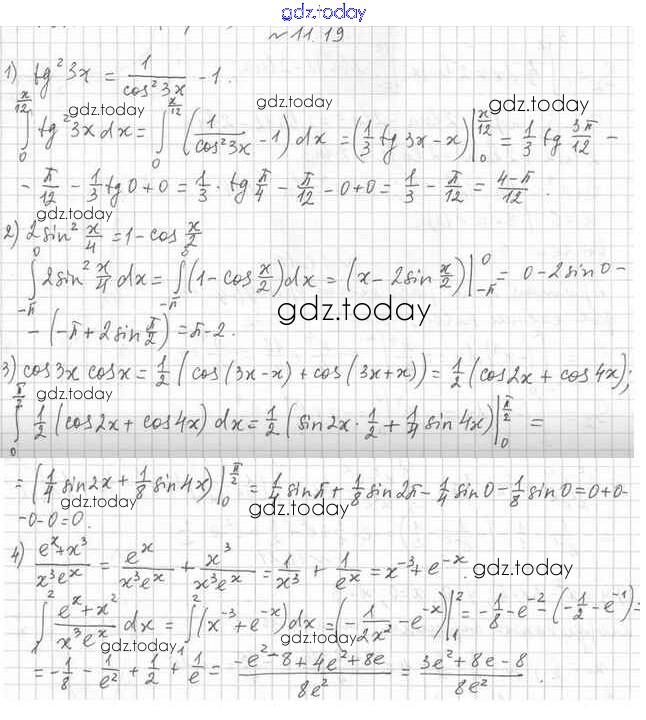 gdz.today
№ 11.19
1) tg² 3x = 1/cos² 3x − 1.
gdz.today gdz.today gdz.today
∫₀^{π/12} tg² 3x dx = ∫₀^{π/12} (1/cos² 3x − 1) dx = (1/3 tg 3x − x)|₀^{π/12} = 1/3 tg 3π/12 −
− π/12 − 1/3 tg 0 + 0 = 1/3 · tg π/4 − π/12 − 0 + 0 = 1/3 − π/12 = (4 − π)/12 .
gdz.today
2) 2 sin² x/4 = 1 − cos x/2
∫_{−π}^{0} 2 sin² x/4 dx = ∫_{−π}^{0} (1 − cos x/2) dx = (x − 2 sin x/2)|_{−π}^{0} = 0 − 2 sin 0 −
gdz.today
− (−π + 2 sin π/2) = π − 2.
3) cos 3x cos x = 1/2 (cos (3x − x) + cos (3x + x)) = 1/2 (cos 2x + cos 4x);
gdz.today gdz.today
∫₀^{π/2} 1/2 (cos 2x + cos 4x) dx = 1/2 (sin 2x · 1/2 + 1/4 sin 4x)|₀^{π/2} =
= (1/4 sin 2x + 1/8 sin 4x)|₀^{π/2} = 1/4 sin π + 1/8 sin 2π − 1/4 sin 0 − 1/8 sin 0 = 0 + 0 −
gdz.today gdz.today
− 0 − 0 = 0.
4) (eˣ + x³)/(x³eˣ) = eˣ/(x³eˣ) + x³/(x³eˣ) = 1/x³ + 1/eˣ = x⁻³ + e⁻ˣ.
gdz.today
∫₁² (eˣ + x²)/(x³eˣ) dx = ∫₁² (x⁻³ + e⁻ˣ) dx = (−1/(2x²) − e⁻ˣ)|₁² = −1/8 − e⁻² − (−1/2 − e⁻¹) =
gdz.today gdz.today gdz.today
= −1/8 − 1/e² + 1/2 + 1/e = (−e² − 8 + 4e² + 8e)/(8e²) = (3e² + 8e − 8)/(8e²) .